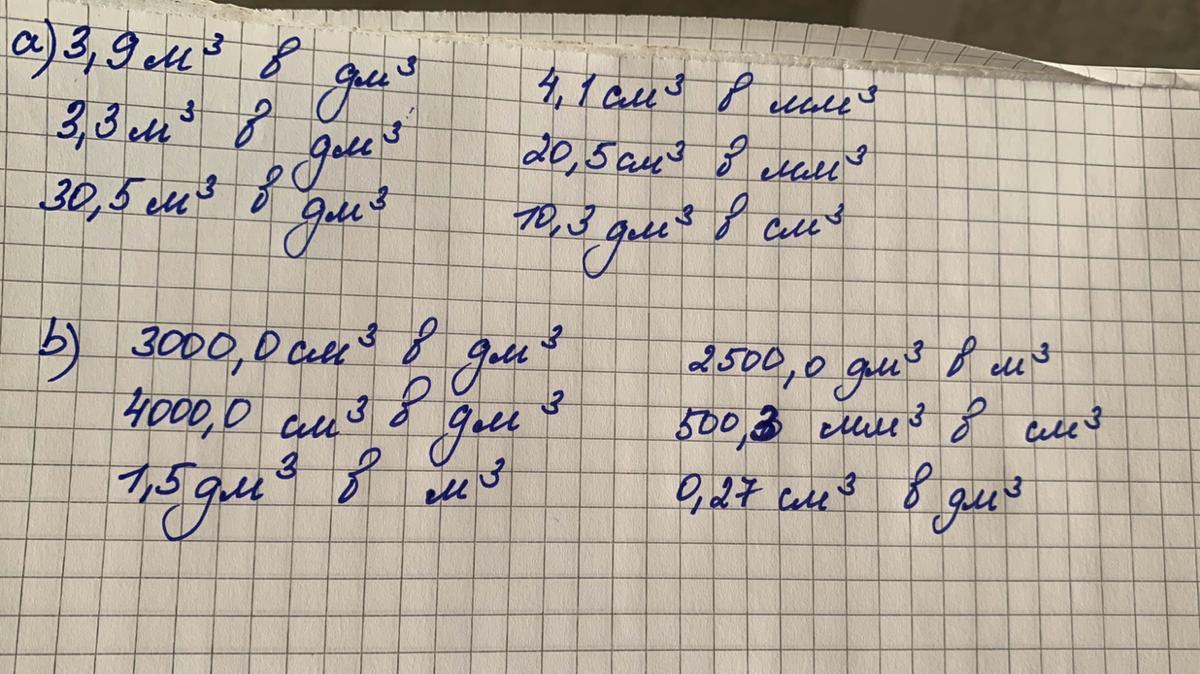 а) 3,9 м³ в дм³
3,3 м³ в дм³
30,5 м³ в дм³
4,1 см³ в мм³
20,5 см³ в мм³
10,3 дм³ в см³
b) 3000,0 см³ в дм³
4000,0 см³ в дм³
1,5 дм³ в м³
2500,0 дм³ в м³
500,3 мм³ в см³
0,27 см³ в дм³